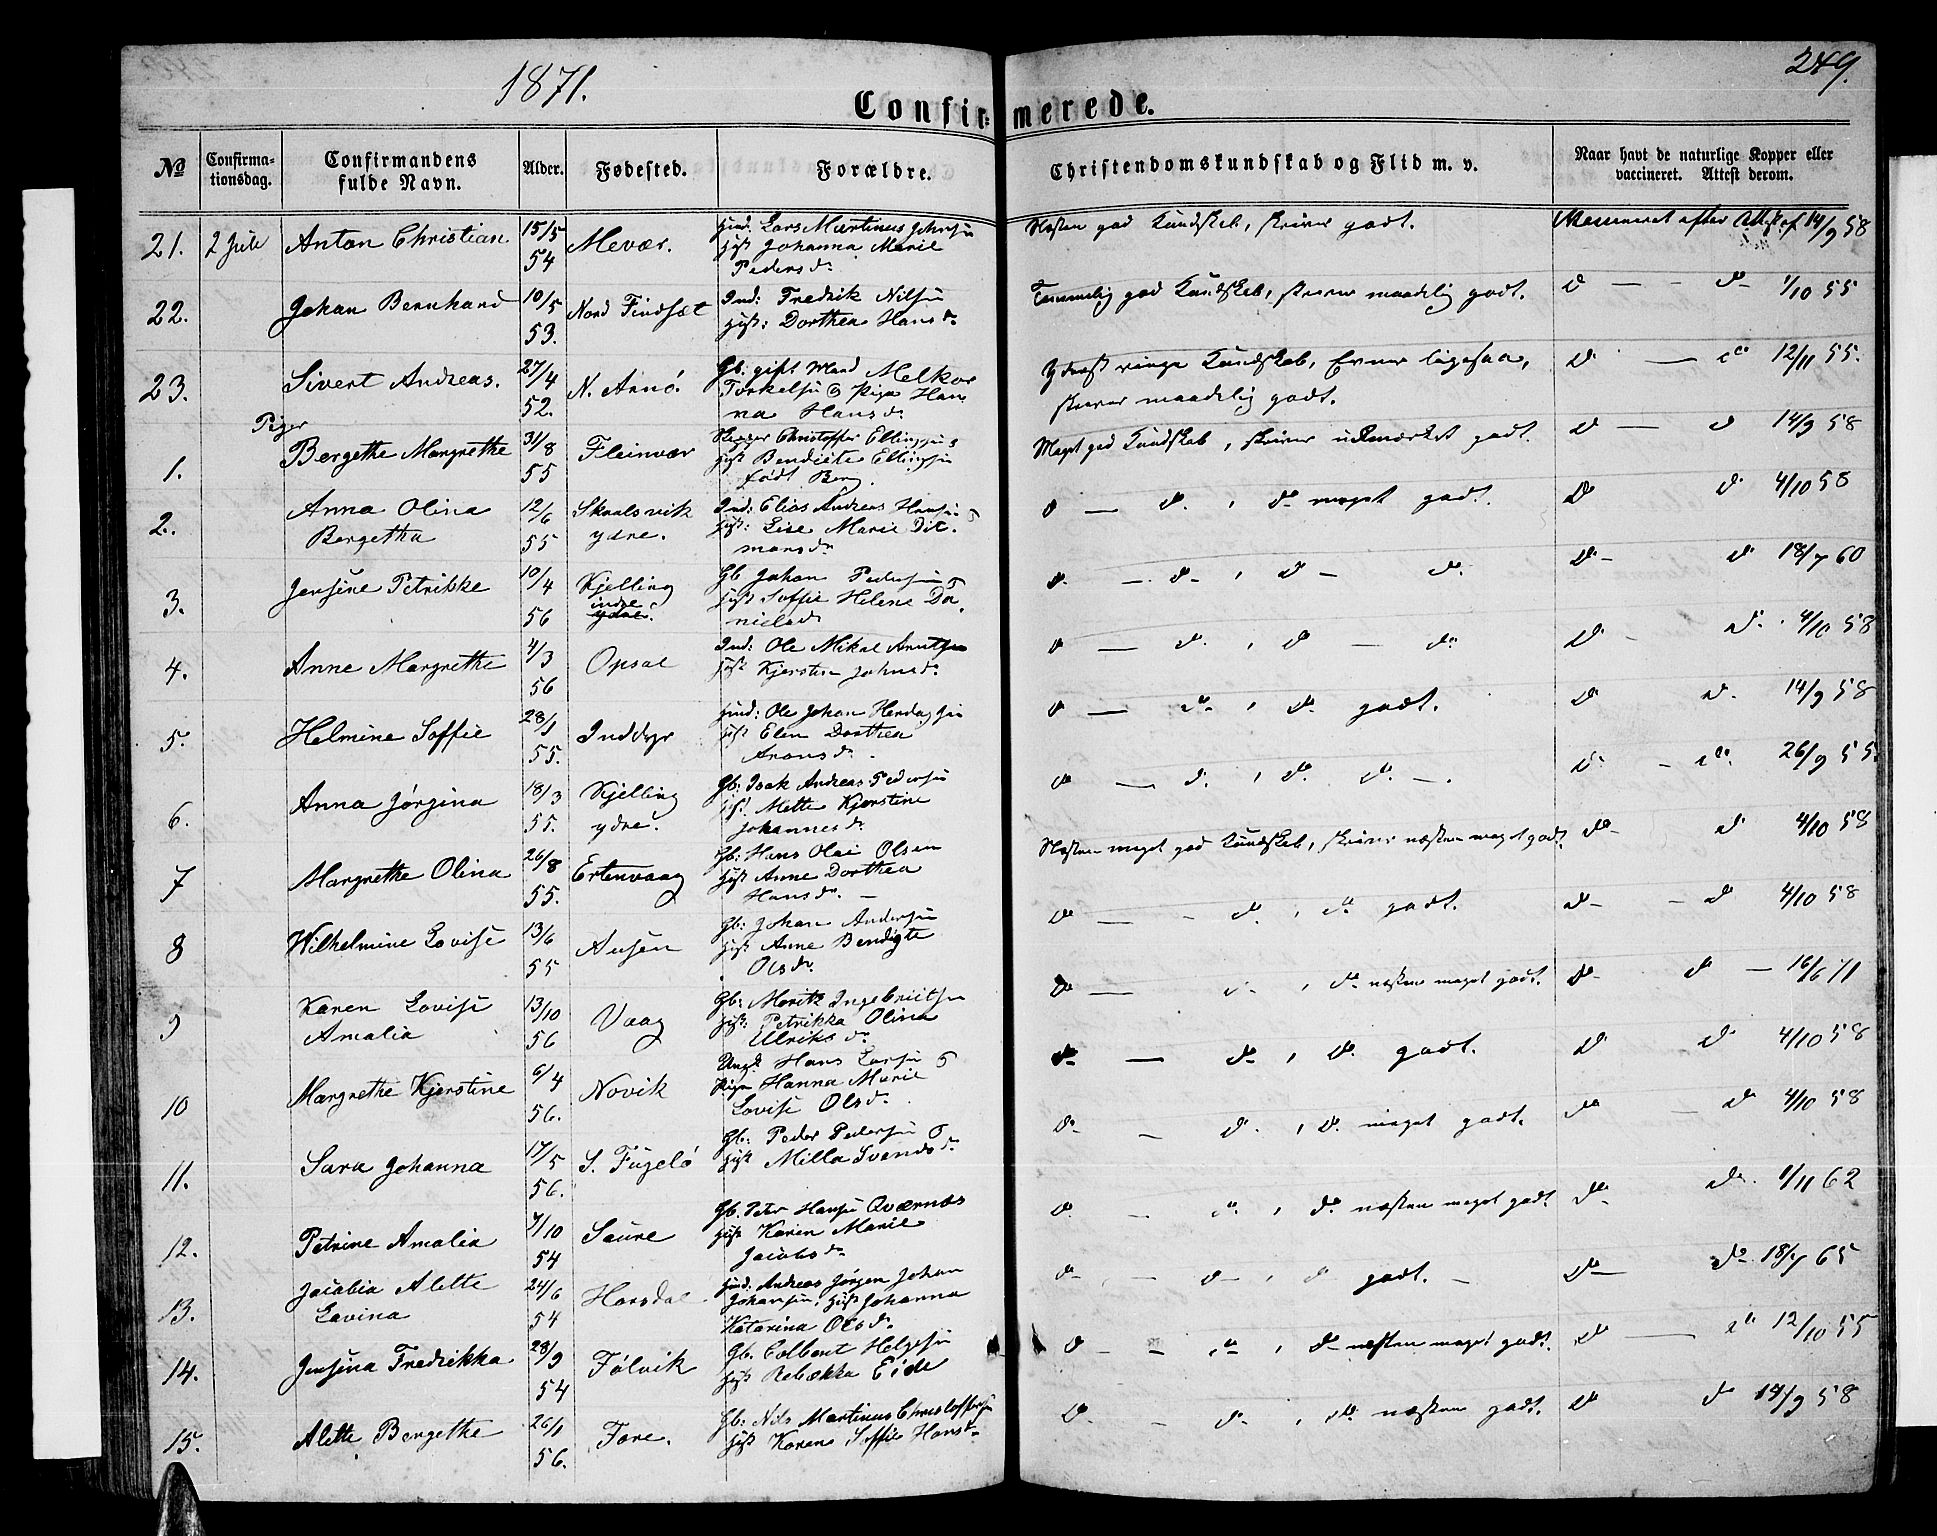 1871.
249.
Confirmerede.
№ Confirmationsdag. Confirmandens fulde Navn. Alder. Fødested. Forældre. Christendomskundskab og Flid m. v. Naar havt de naturlige Kopper eller vaccineret. Attest derom.
21. 2 Juli Anton Christian 15/5 54 Mevær. Lars Martinus Johnsen Johanna Marie Pedersd. Næsten god Kundskab, skriver godt. Vaccineret efter Attest af 14/9 58
22. Johan Bernhard 10/5 53. Nord Findsæt Ind: Fredrik Nilsen Hust: Dorthea Hansd. Temmelig god Kundskab, skriver maadelig godt. d — d 1/10 55
23. Sivert Andreas. 27/4 52. N. Arnø. Gb: gift Mand Melkor Torkelsen & Pige Hanna Hansd. Yderst ringe Kundskab, Evner ligesaa, skriver maadelig godt. d. — do 12/11 55.
Piger
1. Bergethe Margrethe 31/8 55 Fleinvær Christoffer Ellingsen & Hust Bendicte Ellingsen født Berg. Meget god Kundskab, skriver udmærket godt. d — d 14/9 58
2. Anna Olina Bergetha 12/6 55 Skaalsvik ydre. Ind: Elias Andreas Hansen & Hust: Lise Marie Ditmarsd. d — d. , do meget godt. d d 4/10 58
3. Jensine Petrikke 10/4 56 Kjelling indre ydre. Gb Johan Pedersen & Hust Soffie Helene Danielsd. d. — d. , d — d. d. d 18/7 60
4. Anne Margrethe 4/3 56 Opsal Ind: Ole Mikal Arntsen Hust Kjersten Johnsd. d — d. , d — d. d. d. 4/10 58
5. Helmine Soffie 28/1 55. Inddyr Ole Johan Hust Elen Dorthea Aronsd. d — d. , d. godt. d d. 14/9 58
6. Anna Jørgina 18/3 55. Kjelling ydre. Gb: Isak Andreas Pedersen Hust. Mette Kjerstine Johannesd. d — d. , d. d. —. d. — do. 26/9 55.
7 Margrethe Olina 26/8 55. Ertenvaag Gb: Hans Olai Olsen Hust Anne Dorthea Hansd. — Næsten meget god Kundskab, skriver næsten meget godt. do d 4/10 58
8 Wilhelmine Lovise 13/6 55 Ausen Gb: Johan Andersen Hust Anne Bendigte Olsd. do — d. , do godt. d — d 4/10 58
9 Karen Lovise Amalia 13/10 56 Vaag Gb: Moritz Ingebrictsen Hust: Petrikka Olina Ulriksd. do — d. , do næsten meget godt. do d — 16/6 71
10 Margrethe Kjerstine 6/4 56. Novik Ungk. Hans Larsen & Pige Hanna Marie Lovise Olsd. do — do , d. godt. d d 4/10 58
11. Sara Johanna 17/5 56. S. Fugelø Gb: Peder Pedersen & Hust Milla Svendsd. d. — d. , d. meget godt. do — d 4/10 58
12. Petrine Amalia 7/10 54 Saure Gb. Peter Hansen Qværnæs Hust Karen Marie Jacobsd. d. — d. , d. næsten meget godt. do d. 1/11 62
13. Jacobia Alette Lavina 24/6 54 Horsdal Andreas Jørgen Johan Johansen, Hust Johanna Katarina Olsd. d. — d. , d godt. — do do. 18/7 65
14. Jensina Fredrikka 28/9 54 Følvik Gb. Colbent Helgesen Hust Rebekka Eide d. — do , do næsten meget godt. do — do 12/10 55
15. Alette Bergethe 26/1 56. Fore. Gb: Nils Martinus Christoffersen Hust Karen Soffie Hansd. d. — do , do. næsten godt. d d 14/9 58